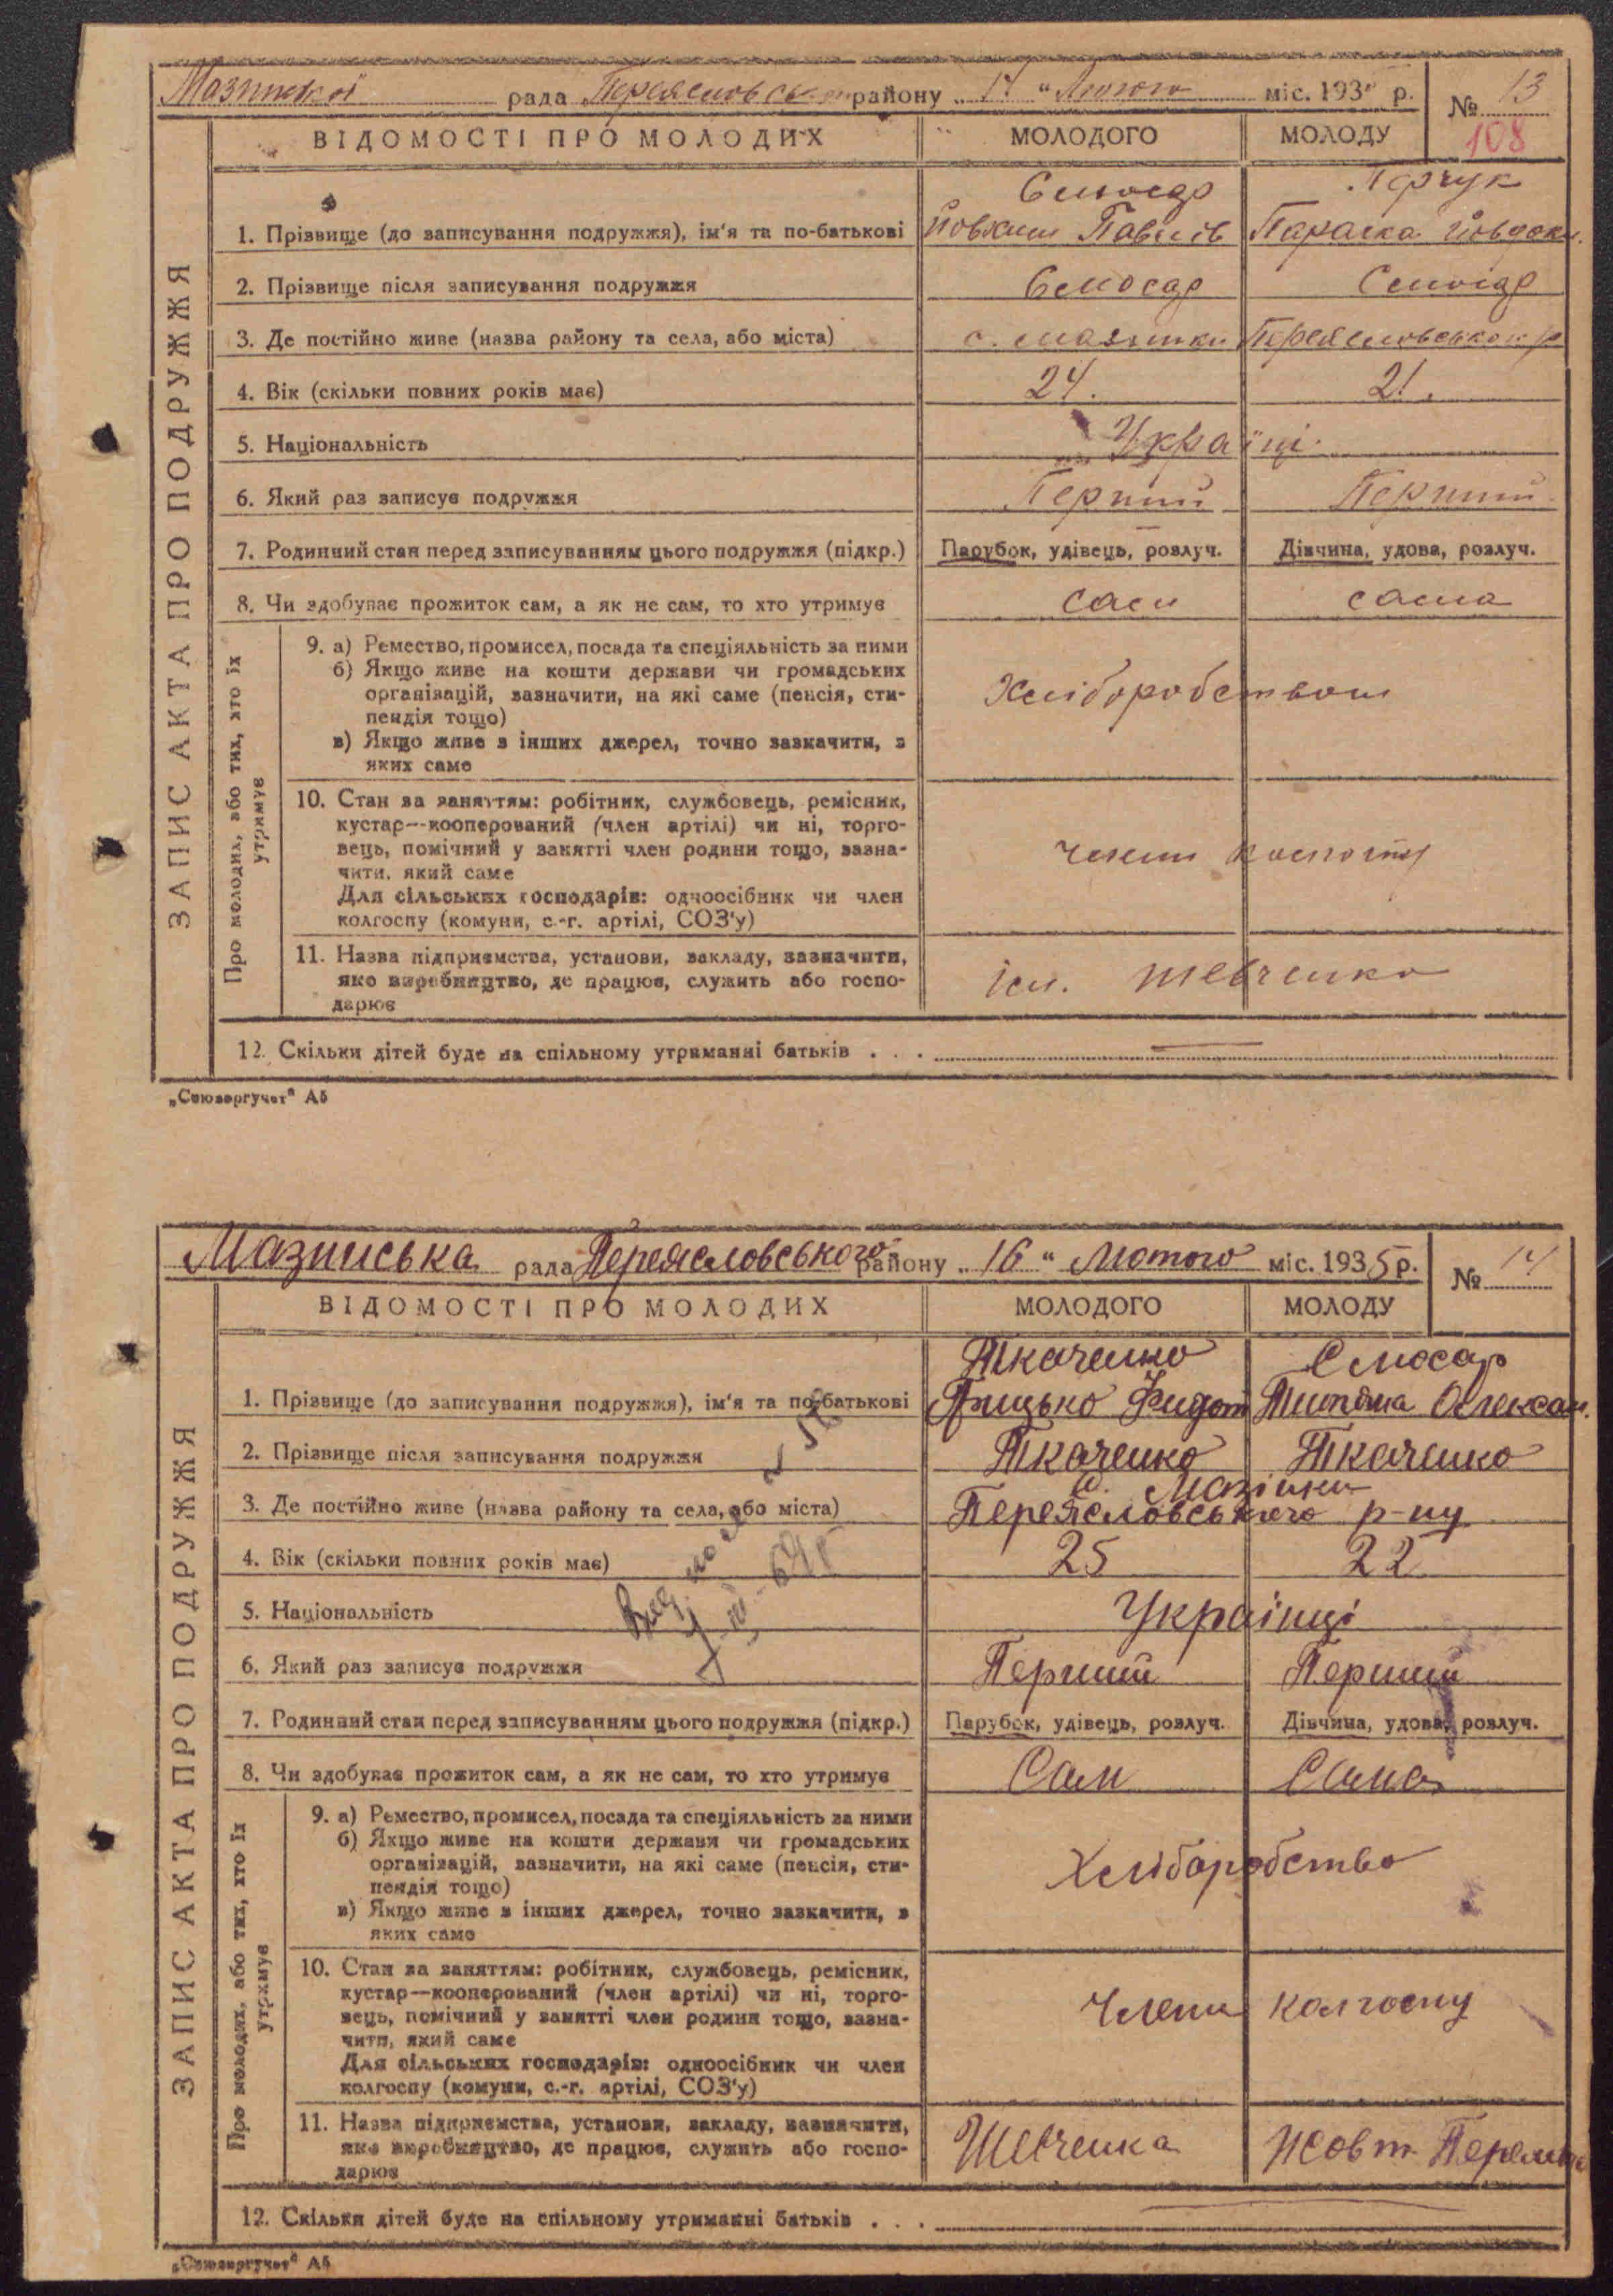 Мазинської рада Переясловськ району „ 14 " Лютого міс. 1935 р. № 13
108
ВІДОМОСТІ ПРО МОЛОДИХ МОЛОДОГО МОЛОДУ
ЗАПИС АКТА ПРО ПОДРУЖЖЯ
Слюсар
1. Прізвище (до записування подружжя), ім'я та по-батькові Йовхим Павлів Параска Йовдок.
2. Прізвище після записування подружжя Слюсар Слюсар
3. Де постійно живе (назва району та села, або міста) с. Мазинки Переясловського р
4. Вік (скільки повних років має) 24. 21.
5. Національність Украінці
6. Який раз записує подружжя Перший Перший
7. Родинний стан перед записуванням цього подружжя (підкр.) Парубок, удівець, розлуч. Дівчина, удова, розлуч.
8. Чи здобуває прожиток сам, а як не сам, то хто утримує сам сама
Про молодих, або тих, хто їх
утримує
9. а) Ремество, промисел, посада та спеціяльність за ними
б) Якщо живе на кошти держави чи громадських
організацій, зазначити, на які саме (пенсія, сти-
пендія тощо)
Хліборобством
в) Якщо живе з інших джерел, точно зазначити, з
яких саме
10. Стан за заняттям: робітник, службовець, ремісник,
кустар—кооперований (член артілі) чи ні, торго-
вець, помічний у занятті член родини тощо, зазна-
чити, який саме
члени колгоспу
Для сільських господарів: одноосібник чи член
колгоспу (комуни, с.-г. артілі, СОЗ'у)
11. Назва підприємства, установи, закладу, зазначити,
яке виробництво, де працює, служить або госпо-
дарює
ім. Шевченка
12. Скільки дітей буде на спільному утриманні батьків . . . —
„Союзоргучет" А5
Мазинська рада Переясловського району „ 16 " Лютого міс. 1935 р. № 14
ВІДОМОСТІ ПРО МОЛОДИХ МОЛОДОГО МОЛОДУ
ЗАПИС АКТА ПРО ПОДРУЖЖЯ
Ткаченко Слюсар
1. Прізвище (до записування подружжя), ім'я та по-батькові Грицько Федот Титяна Олексан.
2. Прізвище після записування подружжя Ткаченко Ткаченко
с. Мазінки
3. Де постійно живе (назва району та села, або міста) Переясловського р-ну
4. Вік (скільки повних років має) 25 22
5. Національність Украінці
6. Який раз записує подружжя Перший Перший
7. Родинний стан перед записуванням цього подружжя (підкр.) Парубок, удівець, розлуч. Дівчина, удова, розлуч.
8. Чи здобуває прожиток сам, а як не сам, то хто утримує Сам Сама
Про молодих, або тих, хто їх
утримує
9. а) Ремество, промисел, посада та спеціяльність за ними
б) Якщо живе на кошти держави чи громадських
організацій, зазначити, на які саме (пенсія, сти-
пендія тощо)
Хліборобство
в) Якщо живе з інших джерел, точно зазначити, з
яких само
10. Стан за заняттям: робітник, службовець, ремісник,
кустар—кооперований (член артілі) чи ні, торго-
вець, помічний у занятті член родини тощо, зазна-
чити, який саме
Члени колгоспу
Для сільських господарів: одноосібник чи член
колгоспу (комуни, с.-г. артілі, СОЗ'у)
11. Назва підприємства, установи, закладу, зазначити,
яке виробництво, де працює, служить або госпо-
дарює
Шевченка Жовт
12. Скільки дітей буде на спільному утриманні батьків . . . —
„Союзоргучет" А5